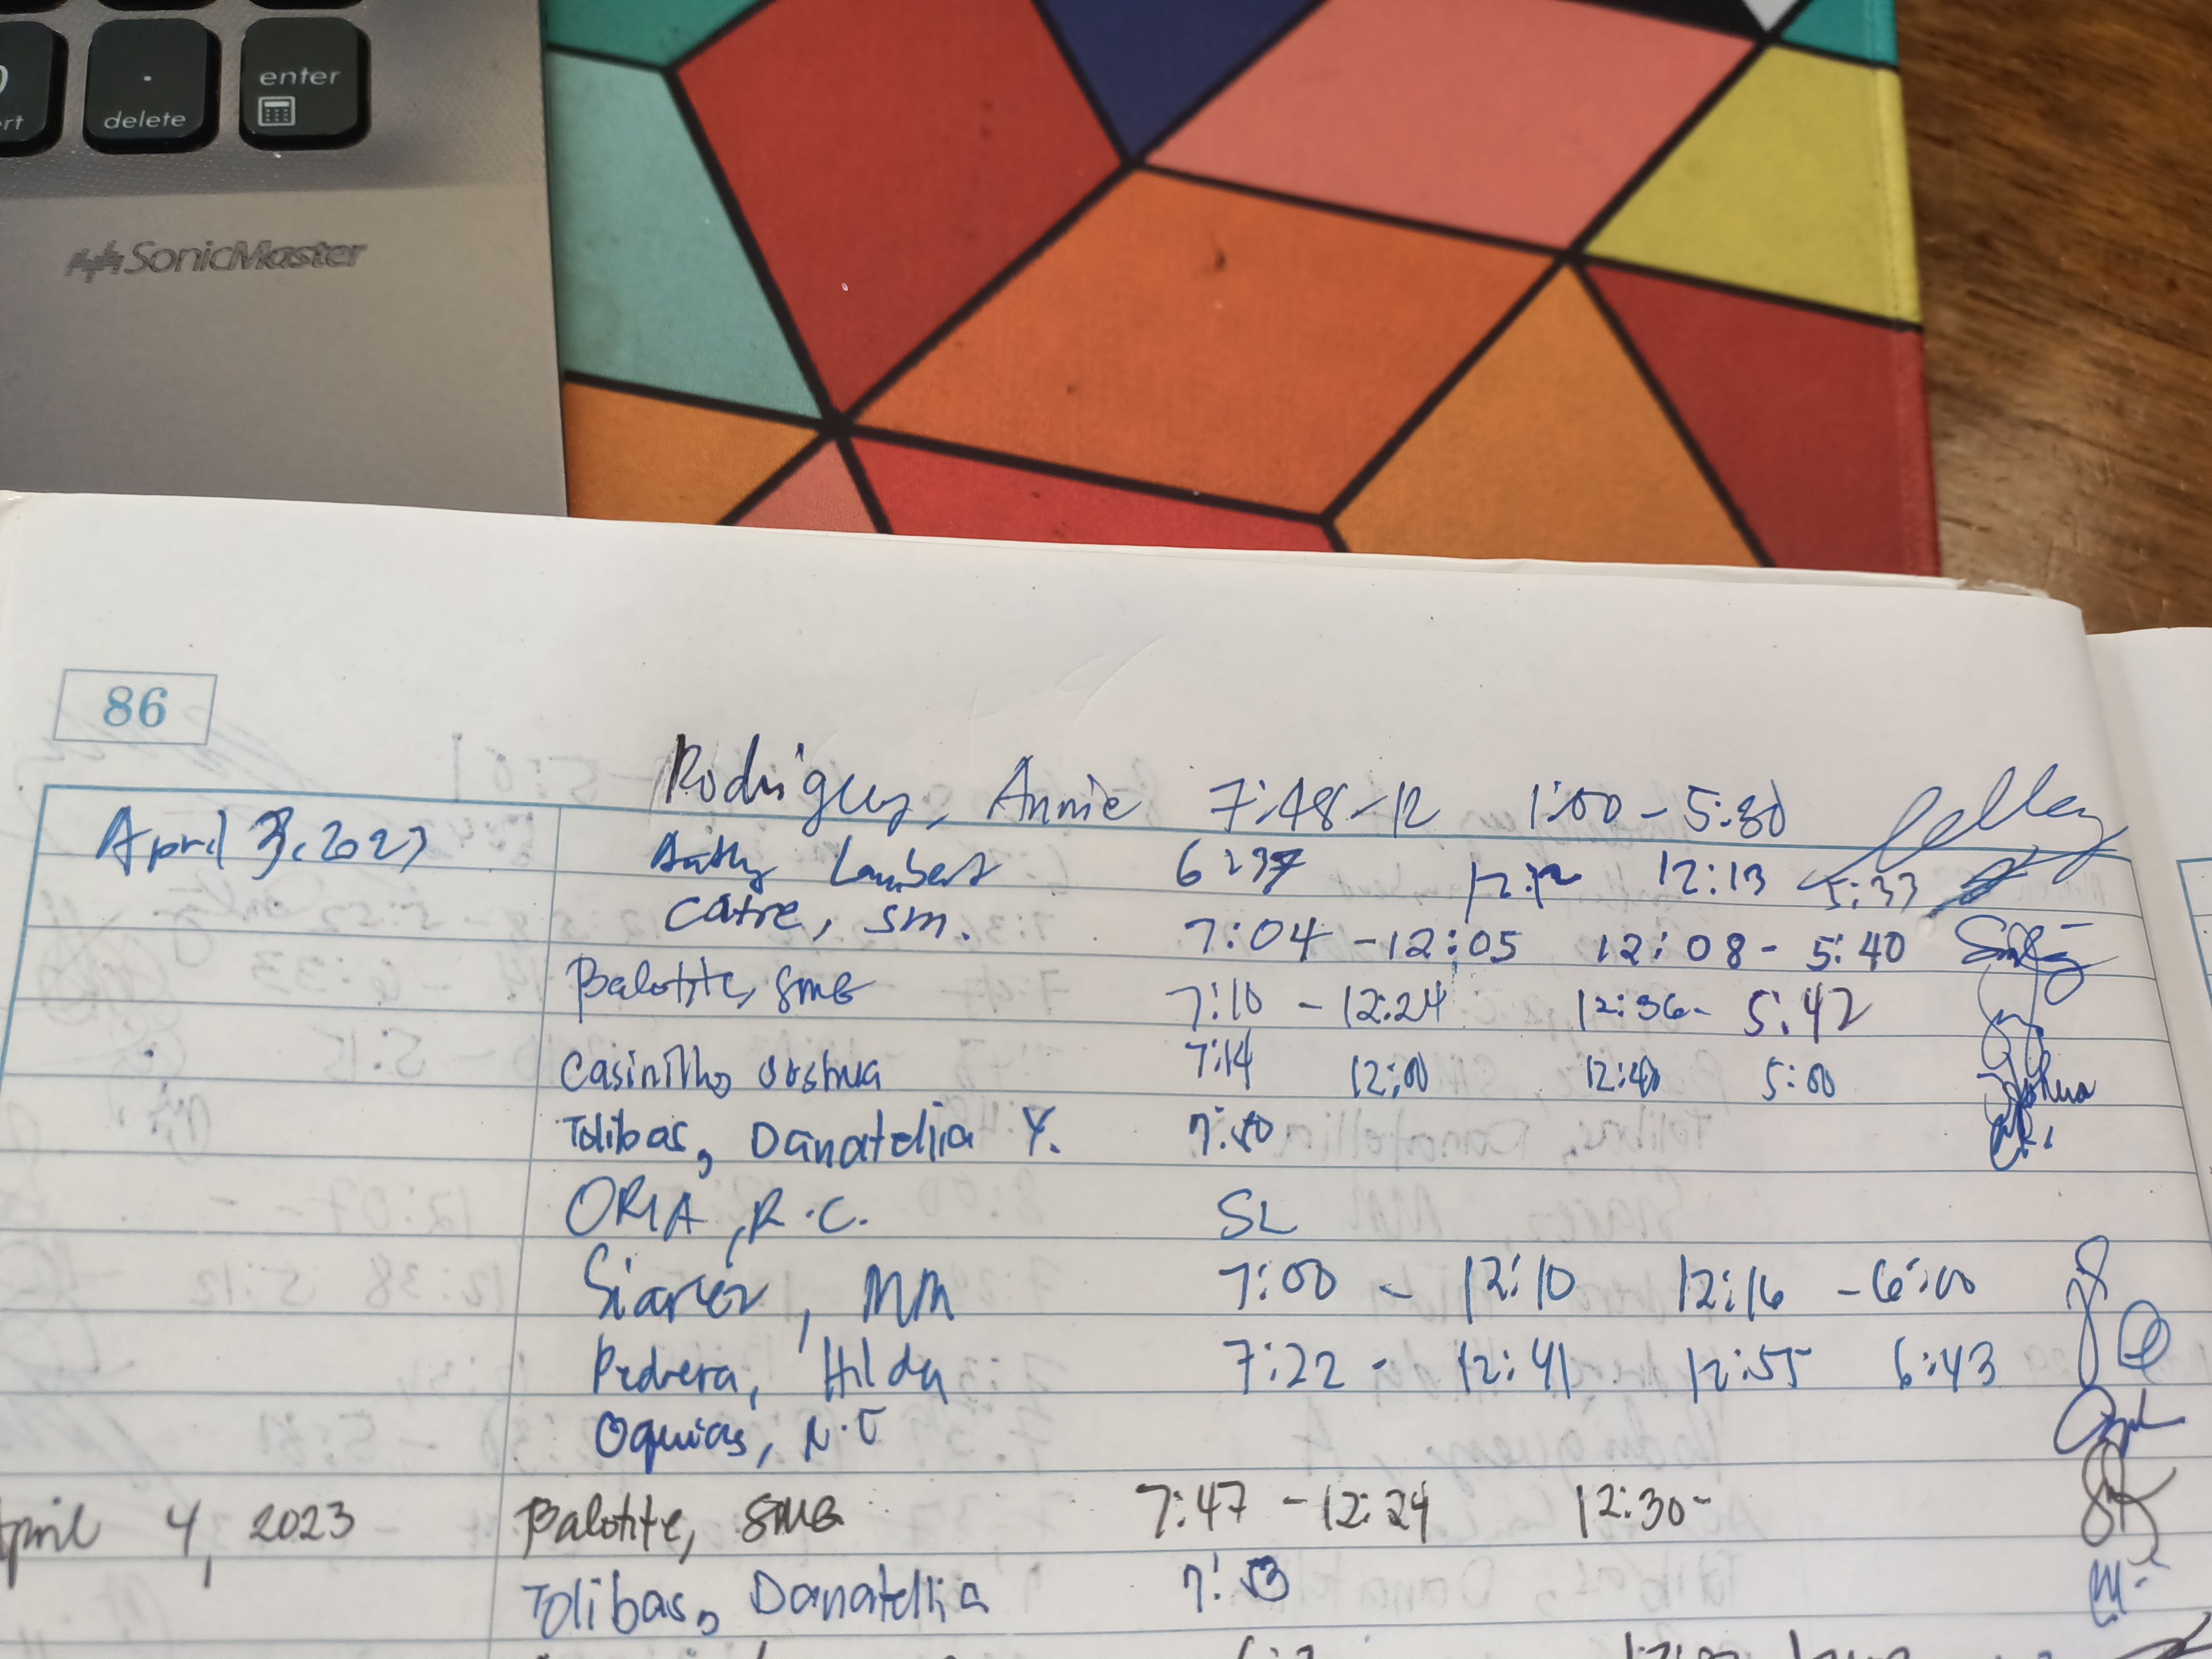 enter
delete
SonicMaster
86
Rodriguez, Annie 7:48-12 1:00-5:30
April 3, 2023 Lambert 12:12 12:13 5:33
Catre, SM. 7:04-12:05 12:08-5:40
Balotite, SMG 7:10-12:24 12:36-5:42
Casinillo, Joshua 7:14 12:00 12:40 5:00
Tolibas, Danatellia Y. 7:50
ORIA, R.C. SL
Siarez, MM 7:00-12:10 12:16-6:00
Pedrera, Hilda 7:22-12:41 12:55 6:43
Oquias, N.J
April 4, 2023 Balotite, SMG 7:47-12:24 12:30-
Tolibas, Danatellia 7:53